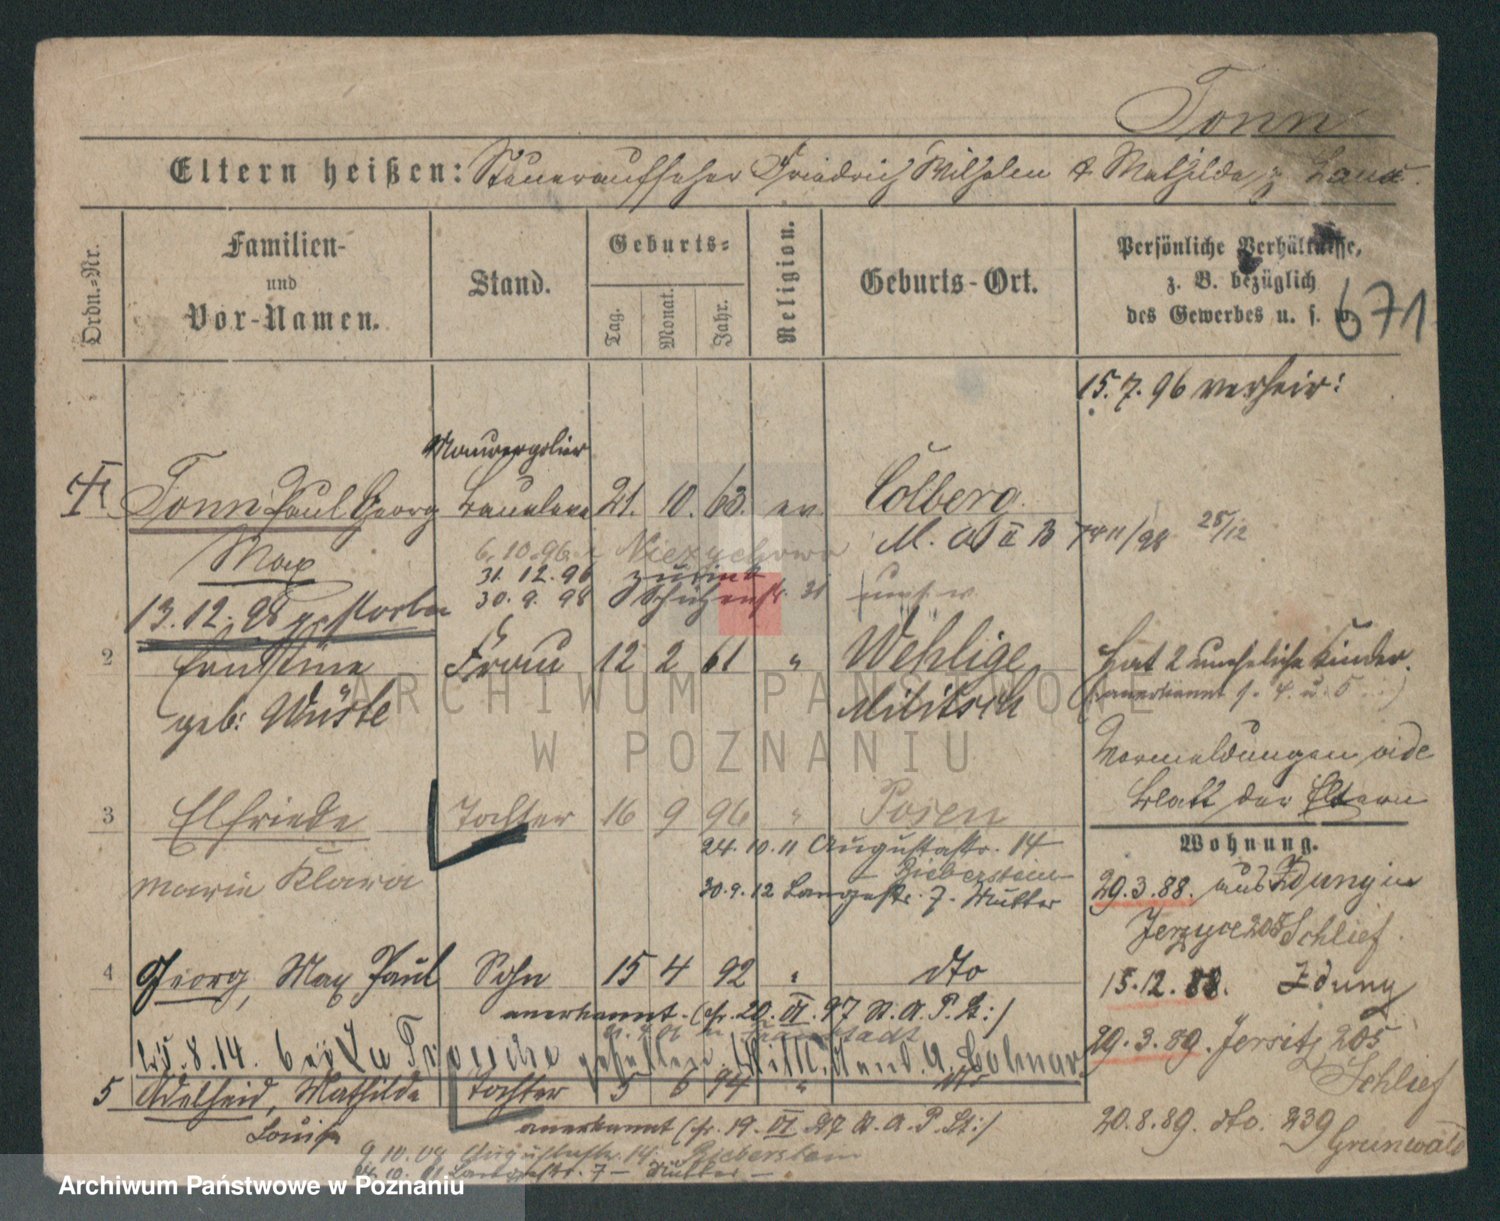 Tonn
Eltern heißen: Steueraufseher Friedrich Wilhelm & Mathilde, g.
Ordn.-Nr.
Familien-
und
Vor-Namen.
Stand.
Geburts-
Tag.
Monat.
Jahr.
Religion.
Geburts-Ort.
Persönliche Verhältnisse,
z. B. bezüglich
des Gewerbes u. s. w.
671
15. 7. 96 verheir:
Maurerpolier
Tonn Paul Georg 21. 10. 63. ev. Colberg.
Max
6. 10. 96. n Niezychowo
M. a II B 25/12
31. 12. 96 zurück
30. 9. 98 Schützenstr. 31
13. 12. 98 gestorben
2 Ernstine Frau 12 2 61 " Wehlige
geb: Wüste Militsch
Hat 2 uneheliche Kinder.
(anerkannt f. 4. u. 5)
Vermeldungen vide
Blatt der Eltern
3 Elfriede Tochter 16 9 96 " Posen
Marie Klara
24. 10. 11 Augustastr. 14
Bieberstein
30. 9. 12 Langestr. 7 - Mutter
Wohnung.
29. 3. 88. aus Zduny in
Jerzyce 208 Schlief.
15. 12. 88. Zduny
29. 3. 89. Jersitz 205
Schlief
20. 8. 89. dto. 239
Grunwald
4 Georg, Max Paul Sohn 15 4 92 " dto
anerkannt (cfr. 20. VI. 97 N. A. P. St:)
25. 8. 14. bei gefallen
5 Adelheid, Mathilde Tochter 5 6 94 " dto
Louise
anerkannt (cfr. 19. VI. 97 N. A. P. St:)
9. 10. 08 Augustastr. 14. Bieberstein
Langestr. 7 - Mutter -
ARCHIWUM PAŃSTWOWE
W POZNANIU
Archiwum Państwowe w Poznaniu